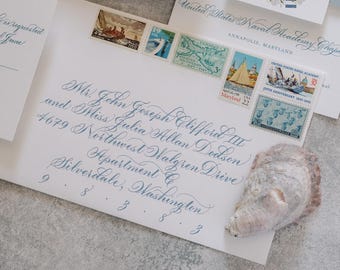 United States Naval Academy Chapel
ANNAPOLIS, MARYLAND
requested
June!
Maryland
Mr. John Joseph Clifford III
and Miss Julia Allan Dodson
4679 Northwest Walgren Drive
Apartment C
Silverdale, Washington
9 8 3 8 3